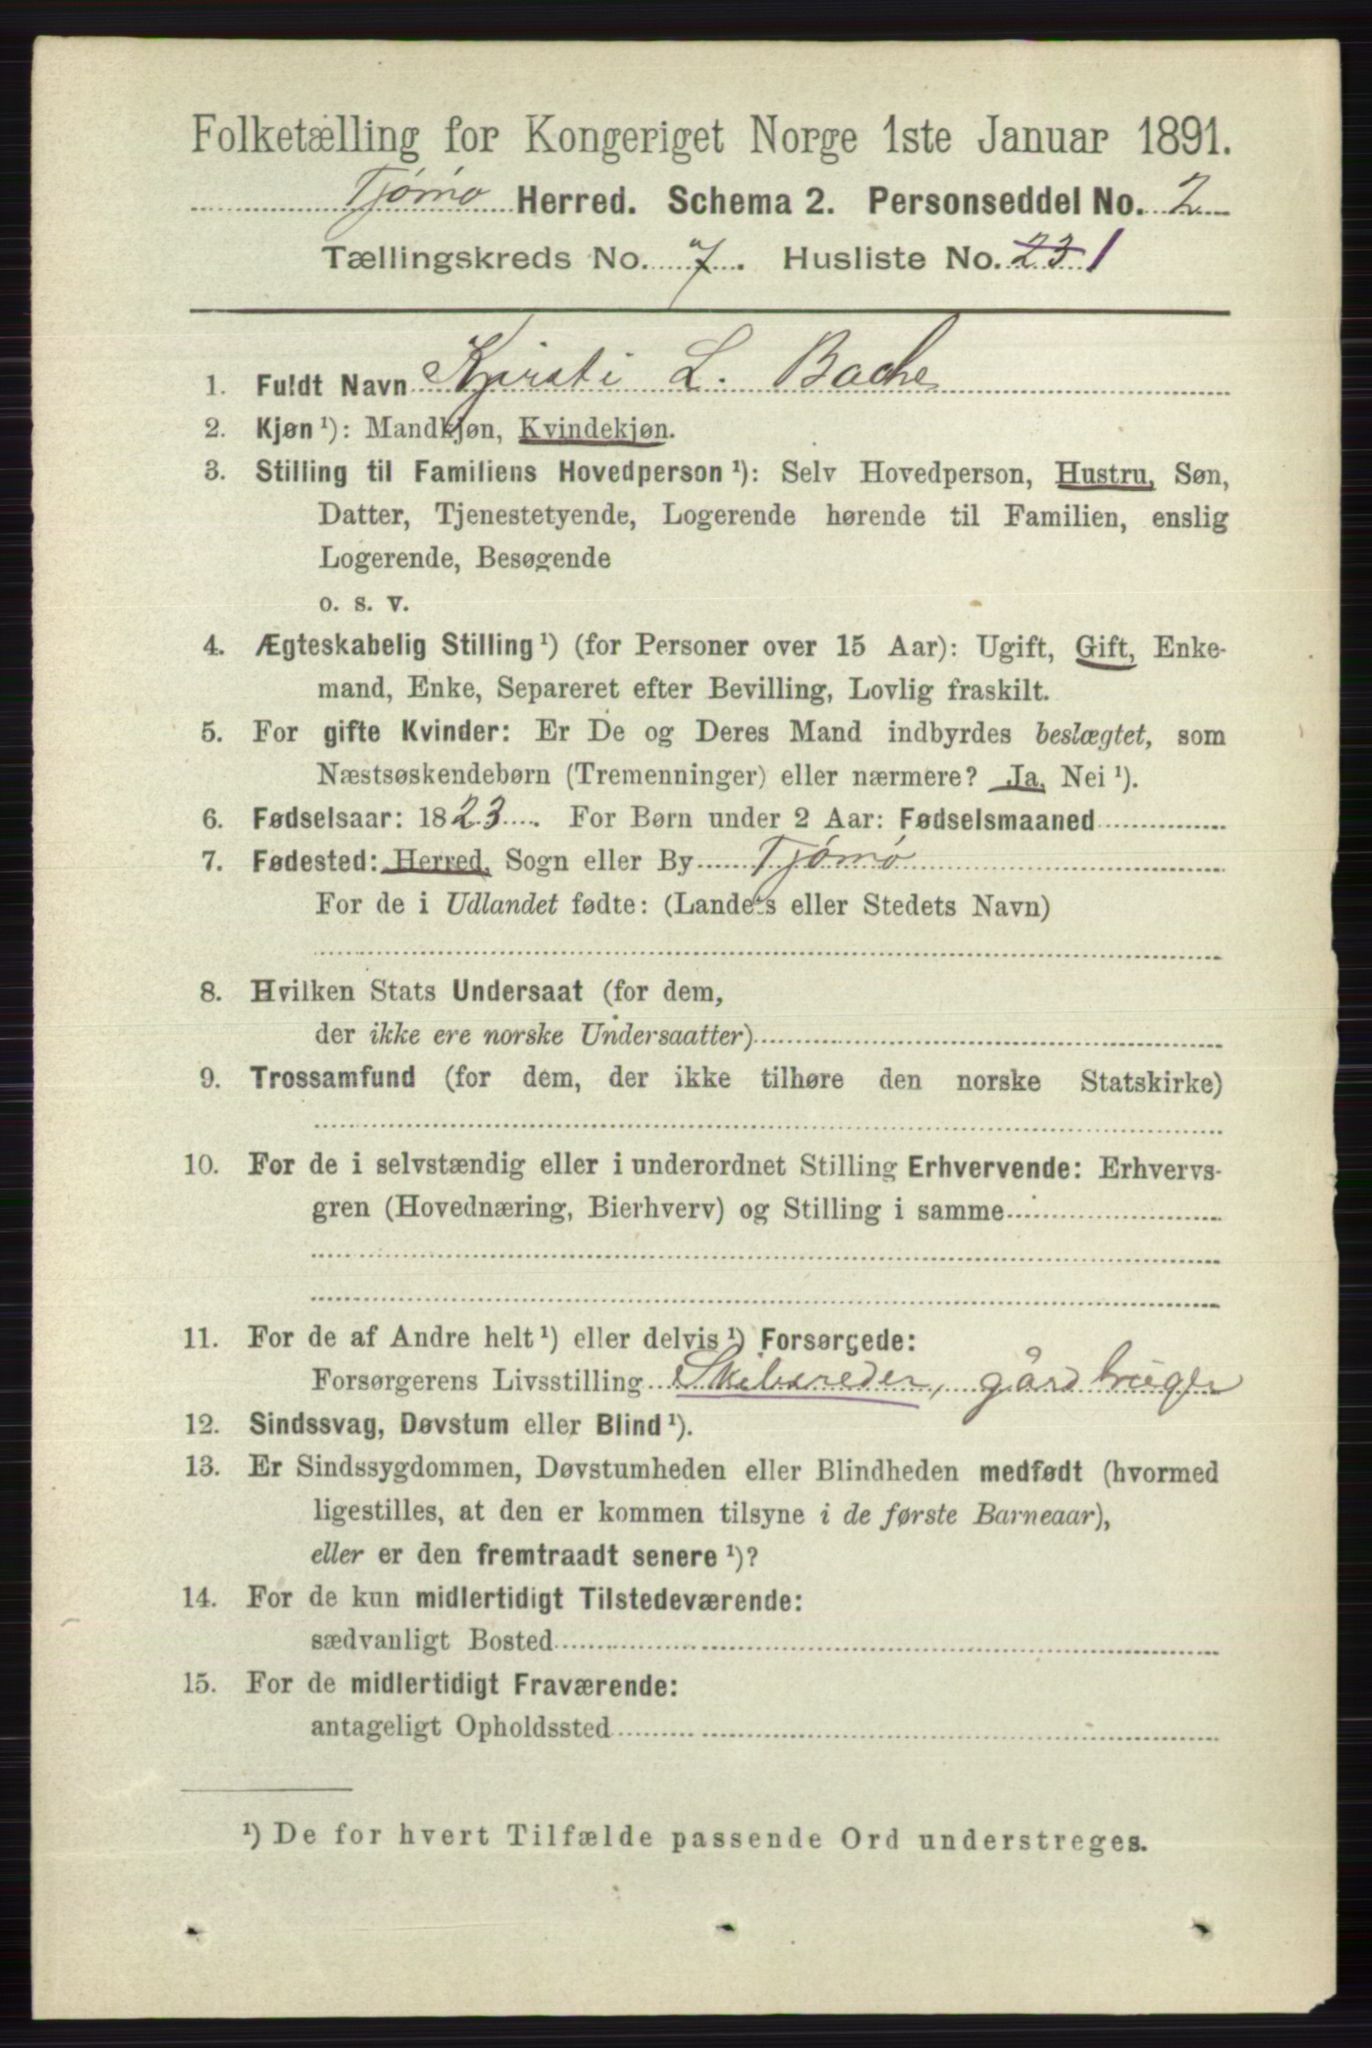 Folketælling for Kongeriget Norge 1ste Januar 1891.
Tjømø Herred. Schema 2. Personseddel No. 2
Tællingskreds No. 7. Husliste No. 23 1
1. Fuldt Navn Kjirsti L. Bache
2. Kjøn ¹): Mandkjøn, Kvindekjøn.
3. Stilling til Familiens Hovedperson ¹): Selv Hovedperson, Hustru, Søn,
Datter, Tjenestetyende, Logerende hørende til Familien, enslig
Logerende, Besøgende
o. s. v.
4. Ægteskabelig Stilling ¹) (for Personer over 15 Aar): Ugift, Gift, Enke-
mand, Enke, Separeret efter Bevilling, Lovlig fraskilt.
5. For gifte Kvinder: Er De og Deres Mand indbyrdes beslægtet, som
Næstsøskendebørn (Tremenninger) eller nærmere? Ja, Nei ¹).
6. Fødselsaar: 1823. For Børn under 2 Aar: Fødselsmaaned
7. Fødested: Herred, Sogn eller By Tjømø
For de i Udlandet fødte: (Landets eller Stedets Navn)
8. Hvilken Stats Undersaat (for dem,
der ikke ere norske Undersaatter)
9. Trossamfund (for dem, der ikke tilhøre den norske Statskirke)
10. For de i selvstændig eller i underordnet Stilling Erhvervende: Erhvervs-
gren (Hovednæring, Bierhverv) og Stilling i samme
11. For de af Andre helt ¹) eller delvis ¹) Forsørgede:
Forsørgerens Livsstilling Skibsreder, gårdbruger
12. Sindssvag, Døvstum eller Blind ¹).
13. Er Sindssygdommen, Døvstumheden eller Blindheden medfødt (hvormed
ligestilles, at den er kommen tilsyne i de første Barneaar),
eller er den fremtraadt senere ¹)?
14. For de kun midlertidigt Tilstedeværende:
sædvanligt Bosted
15. For de midlertidigt Fraværende:
antageligt Opholdssted
¹) De for hvert Tilfælde passende Ord understreges.